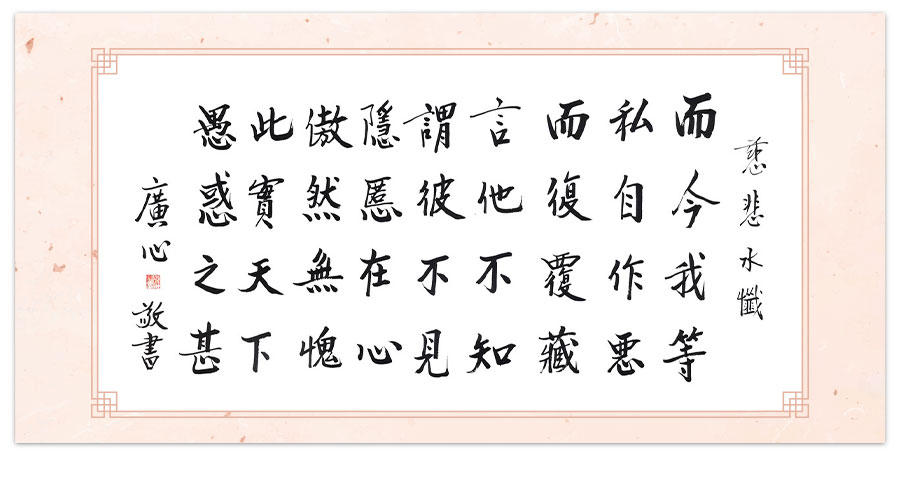 慈悲水懺
而今我等
私自作惡
而復覆藏
言他不知
謂彼不見
隱慝在心
傲然無愧
此實天下
愚惑之甚
廣心
敬書